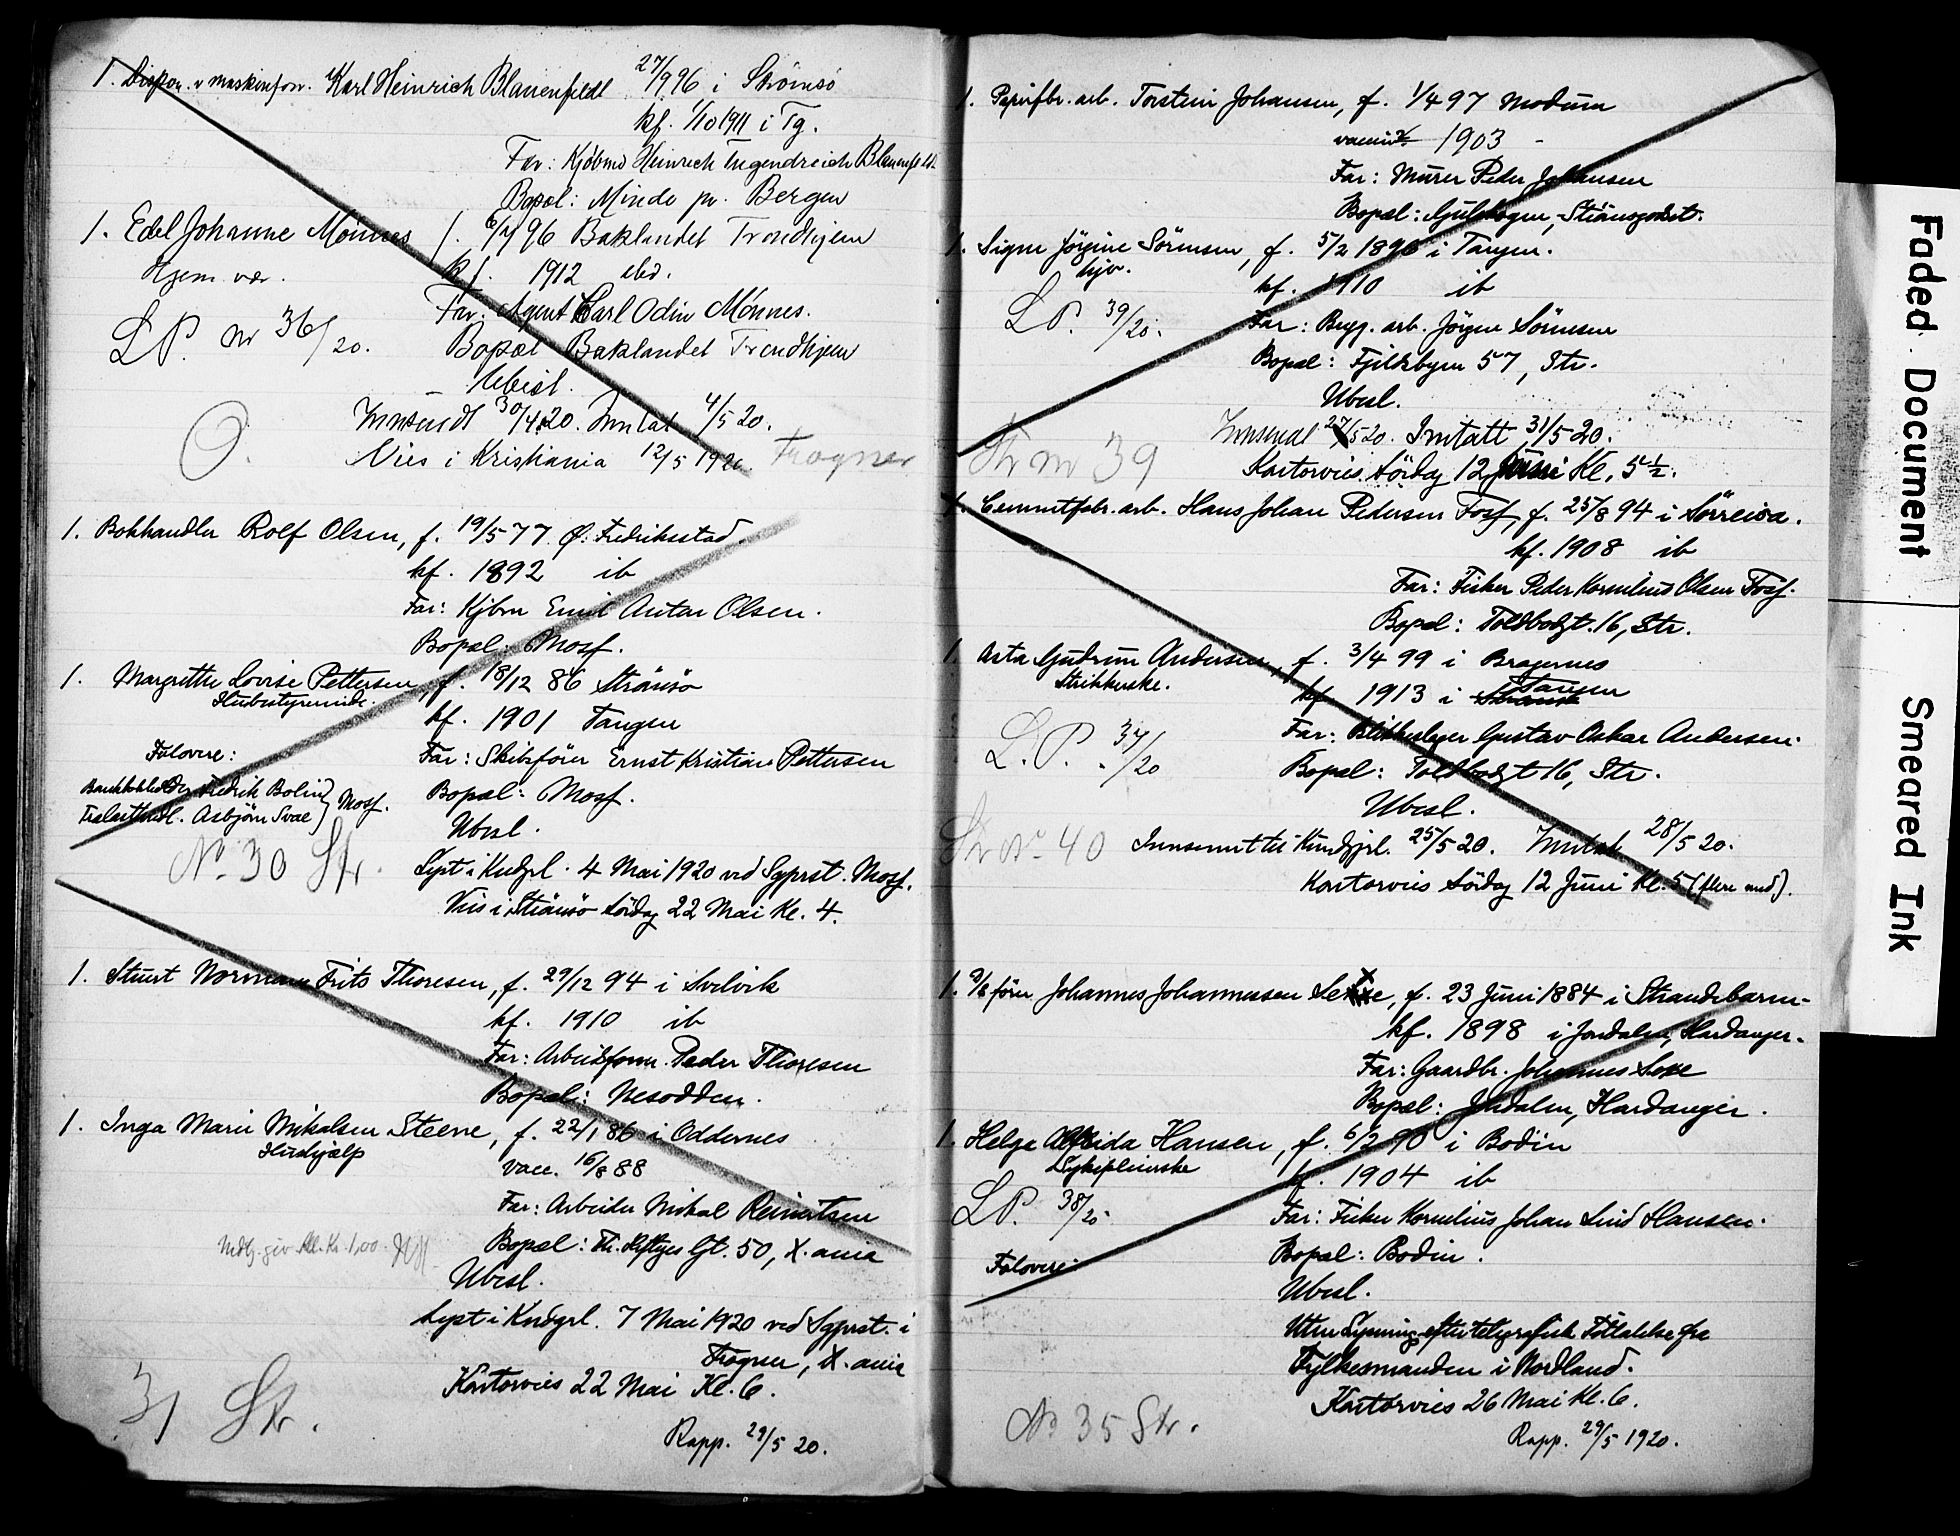 1. Dispon. v maskinforr. Karl Heinrich Blauenfeldt 27/9 96 i Strömsö
kf. 1/10 1911 i Tg.
Far: Kjöbmd Heinrich Blauenfeldt
Bopæl: Minde pr. Bergen
1. Edel Johanne Mönnes f. 6/ 96 Baklandet Trondhjem
Hjem. vær. kf. 1912 ibid.
Far: Agent Carl Odin Mönnes.
LP. nr 36/20. Bopæl Baklandet Trondhjem
Ubesl.
Innsendt 30/4 20. Inntat 4/5 20.
O. Vies i Kristiania 12/5 1920 Frogner
1. Bokhandler Rolf Olsen, f. 19/5 77 Ø. Fredriksstad.
kf. 1892 ib
Far: Kjbm Emil Anton Olsen.
Bopæl: Moss.
1. Margrethe Lovise Pettersen, f. 18/12 86 Strömsö
Husbestyrerinde. kf. 1901 Tangen
Forlovere: Far: Skibsförer Ernst Kristian Pettersen
Fredrik Bolin Bopæl: Moss.
Asbjörn Svae } Moss.
Ubesl.
No. 30 Str. Lyst i Kndgrl. 4 Mai 1920 ved Sgprst. Moss.
Vies i Strömsö Lördag 22 Mai Kl. 4.
1. Stuert Normann Frits Thoresen, f. 29/12 94 i Svelvik
kf. 1910 ib
Far: Arbeidsform. Peder Thoresen
Bopæl: Nesodden.
1. Inga Marie Mikalsen Steene, f. 22/1 86 i Oddernes
Hushjælp vacc. 16/8 88
Far: Arbeider Mikal Reinertsen
Bopæl: Th. Heftyes Gt. 50, X.ania
Ubesl.
Lyst i Kndgrl. 7 Mai 1920 ved Sgprst. i
Frogner, X.ania
31 Str. Kontorvies 22 Mai Kl. 6.
Rapp. 29/5 20.
1. Papirfbr. arb. Torstein Johansen, f. 1/4 97 Modum
vaccin. 1903 -
Far: Murer Peder Johansen
Bopæl: Gulskogen, Strömsgodset.
1. Signe Jörgine Sörensen, f. 5/2 1896 i Tangen.
hjv. kf. 1910 ib
LP. 39/20. Far: Brygg. arb. Jörgen Sörensen
Bopæl: Fjeldsbyen 57, Str.
Ubesl.
Innsendt 27/5 20. Inntatt 31/5 20.
Str nr 39 Kontorvies Lördag 12 Juni Kl. 5 1/2.
1. Cementfabr. arb. Hans Johan Pedersen Foss, f. 25/8 94 i Sörreisa.
kf. 1908 ib
Far: Fisker Peder Kornelius Olsen Foss.
Bopæl: Toldbodgt. 16, Str.
1. Asta Gudrun Andersen, f. 3/4 99 i Bragernes
Strikkerske. kf 1913 i Tangen
Far: Blikkenslager Gustav Oskar Andersen.
L.P. 37/20 Bopæl: Toldbodgt 16, Str.
Ubesl.
Str Nr 40 Innsendt til Kundgjrl. 25/5 20. Inntak 28/5 20.
Kontorvies Lördag 12 Juni Kl. 5 (flere and).
1. förer Johannes Johannessen Sexe, f. 23 Juni 1884 i Strandebarm-
kf. 1898 i Jondalen, Hardanger-
Far: Gaardbr. Johannes Sexe
Bopæl: Jondalen, Hardanger.
1. Helga Alfrida Hansen, f. 6/2 90 i Bodin
Sykepleierske kf. 1904 ib
LP. 38/20 Far: Fisker Kornelius Johan Lind Hansen.
Bopæl: Bodin.
Forlovere:
Ubesl.
Uten Lysning efter telegrafisk Tillatelse fra
Fylkesmanden i Nordland.
Kontorvies 26 Mai Kl. 6.
No 35 Str. Rapp. 29/5 1920.
Faded Document
Smeared Ink